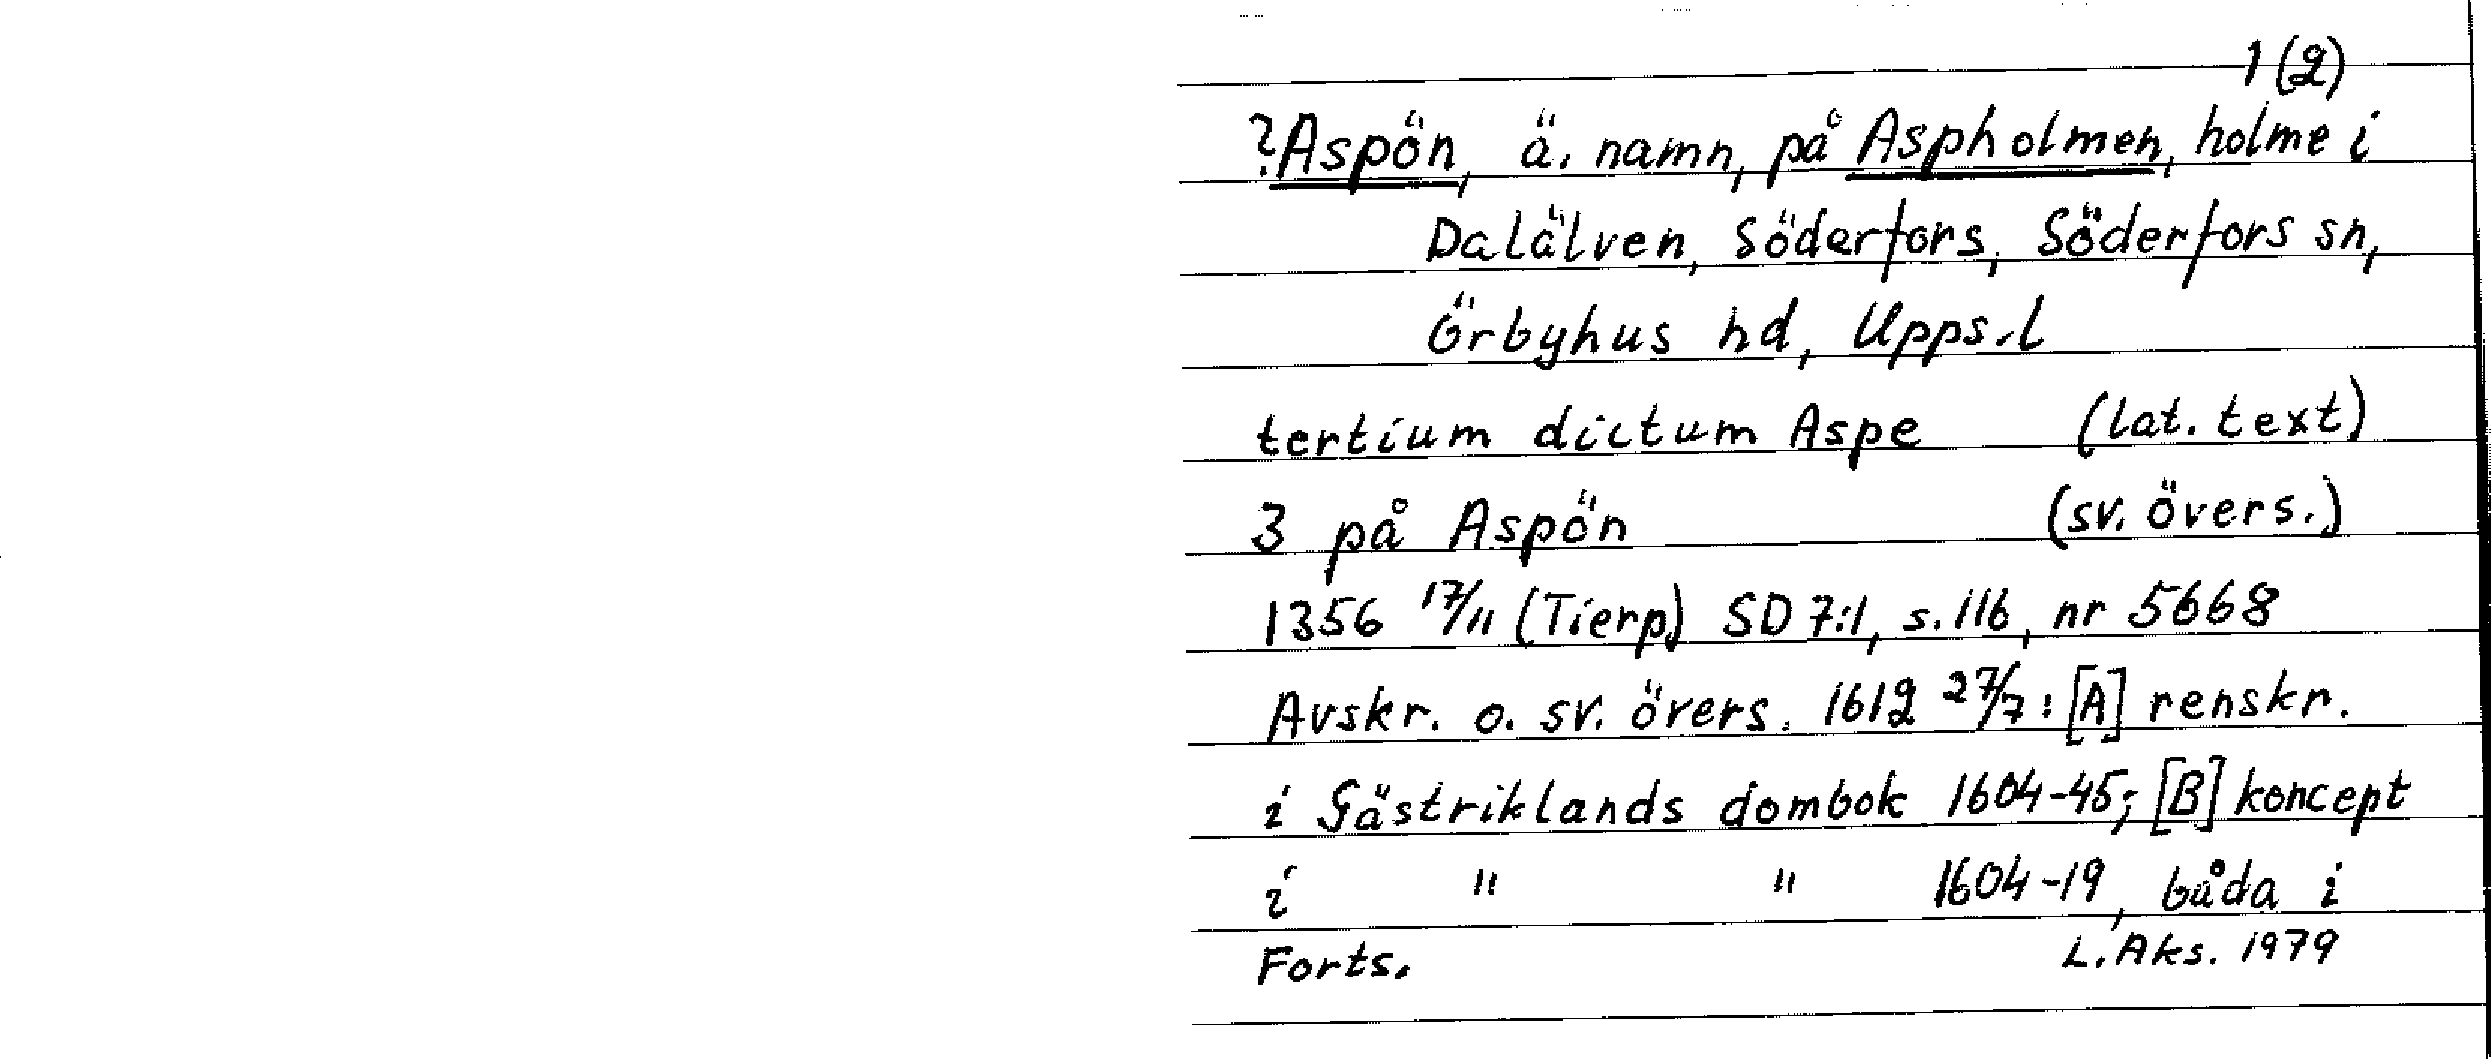 1(2)
?Aspön, ä. namn, på Aspholmen, holme i
Dalälven, Söderfors, Söderfors sn,
Örbyhus hd, Upps.l
tertium dictum Aspe (lat. text)
3 på Aspön (sv. övers.)
1356 17/11 (Tierp) SD 7:1, s. 116, nr 5668
Avskr. o. sv. övers. 1612 27/7: [A] renskr.
i Gästriklands dombok 1604-45; [B] koncept
i " " 1604-19, båda i
Forts. L. Aks. 1979